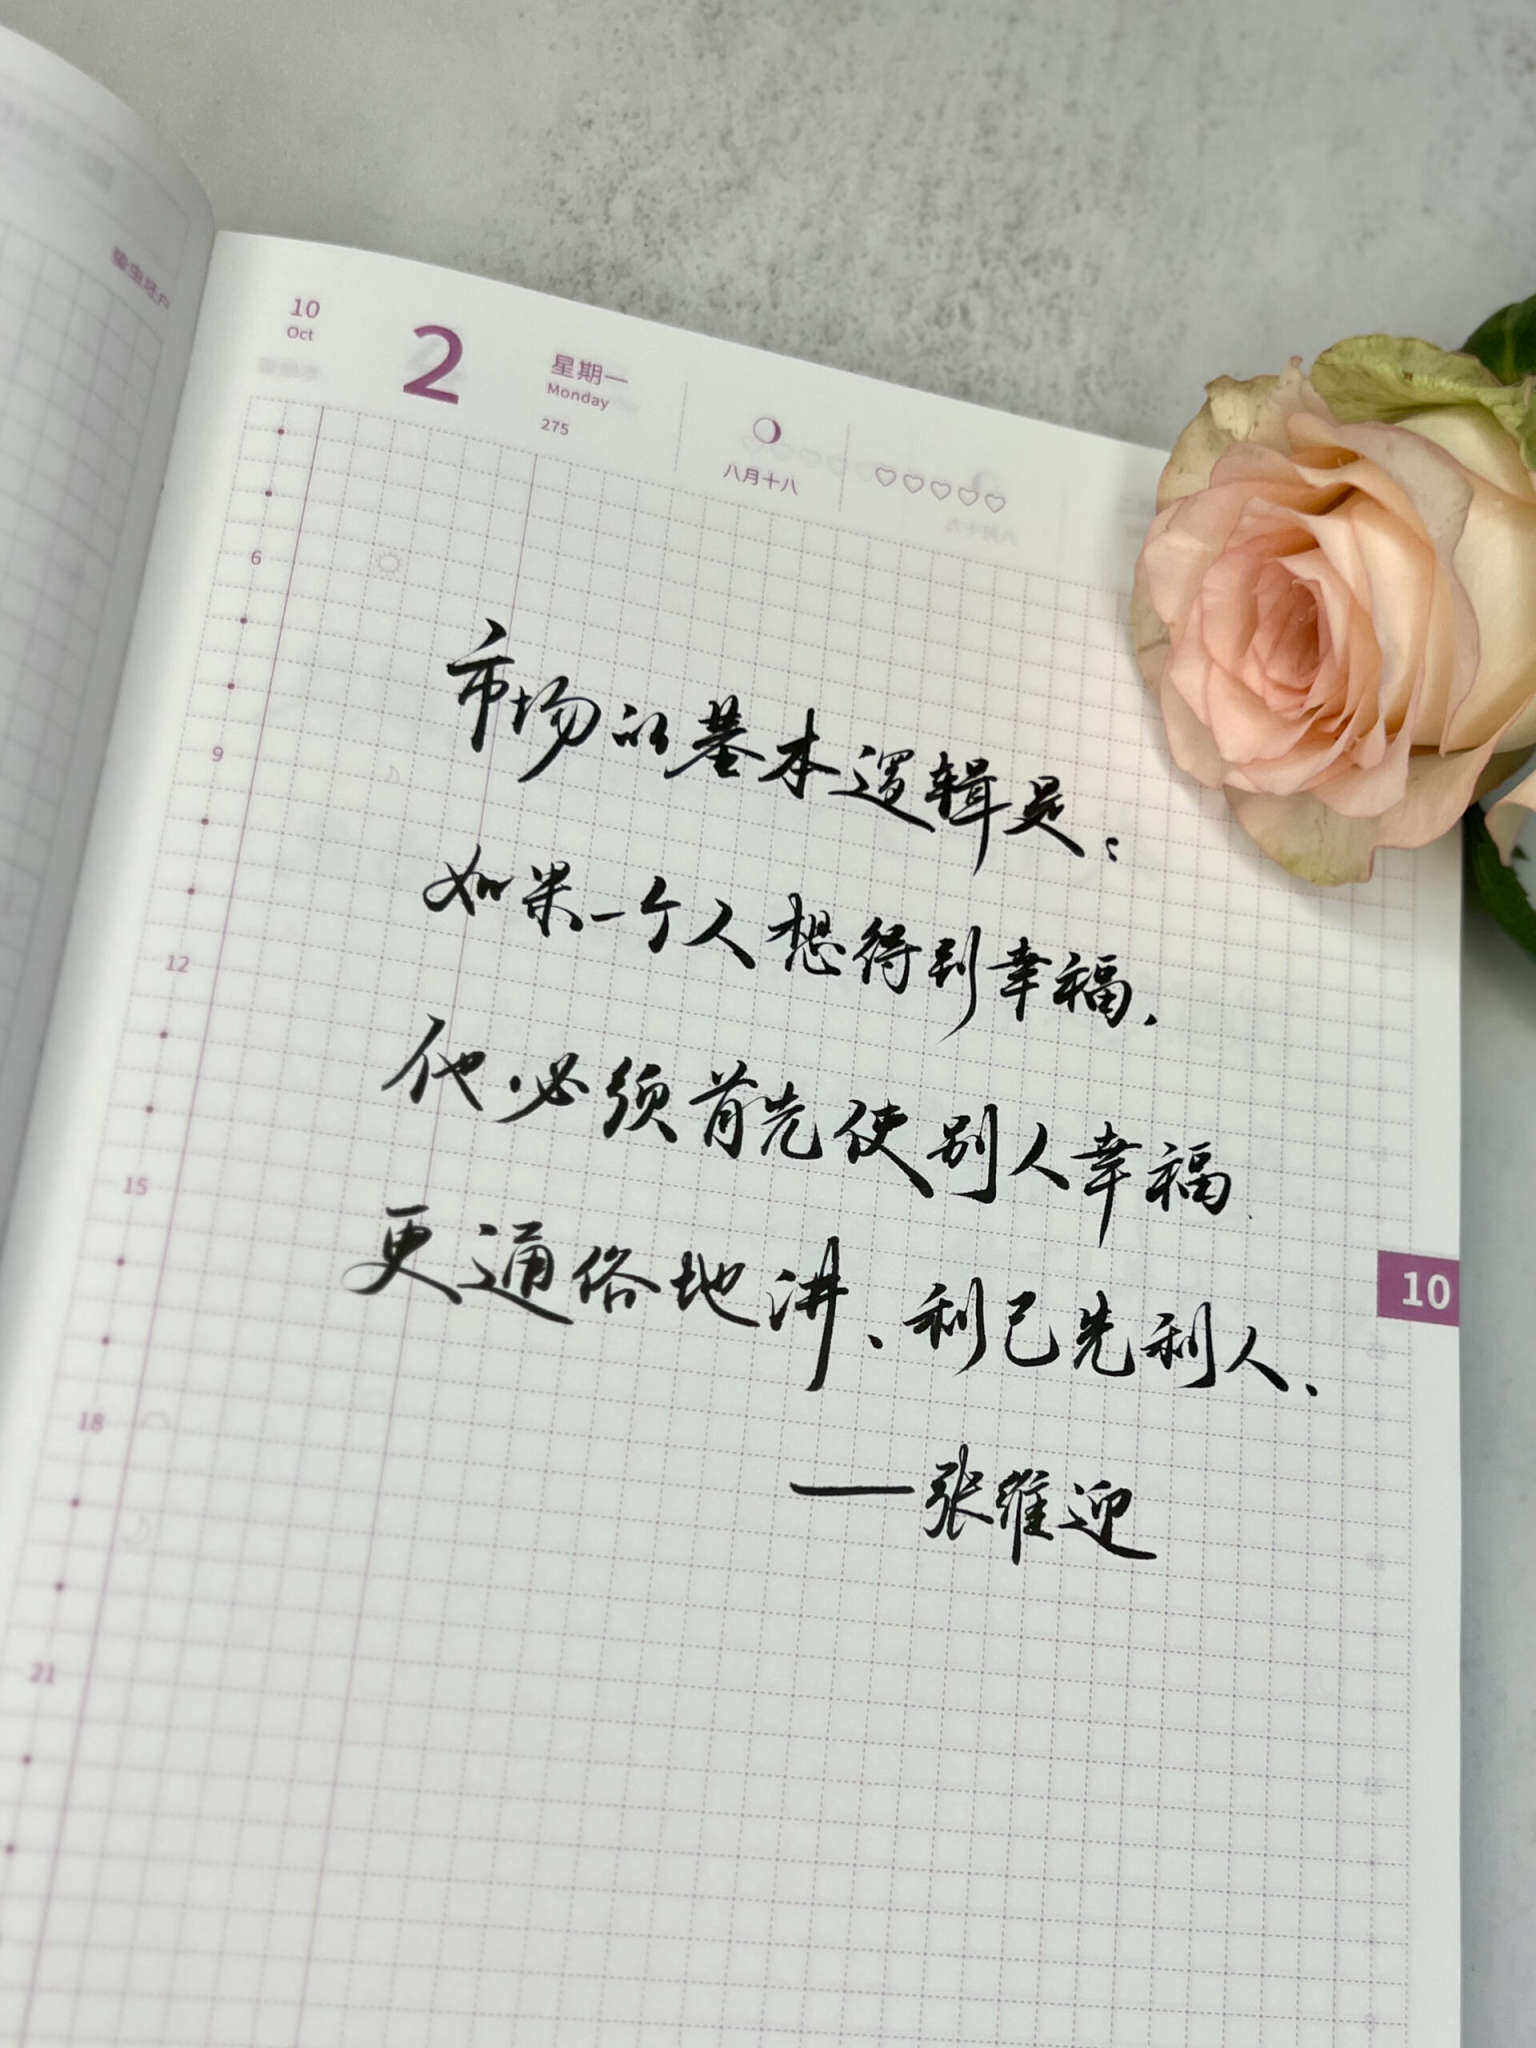 10
Oct
2
星期一
Monday
275
八月十八
6
9
12
15
18
21
市场的基本逻辑是：
如果一个人想得到幸福，
他必须首先使别人幸福.
更通俗地讲、利己先利人.
——张维迎
10